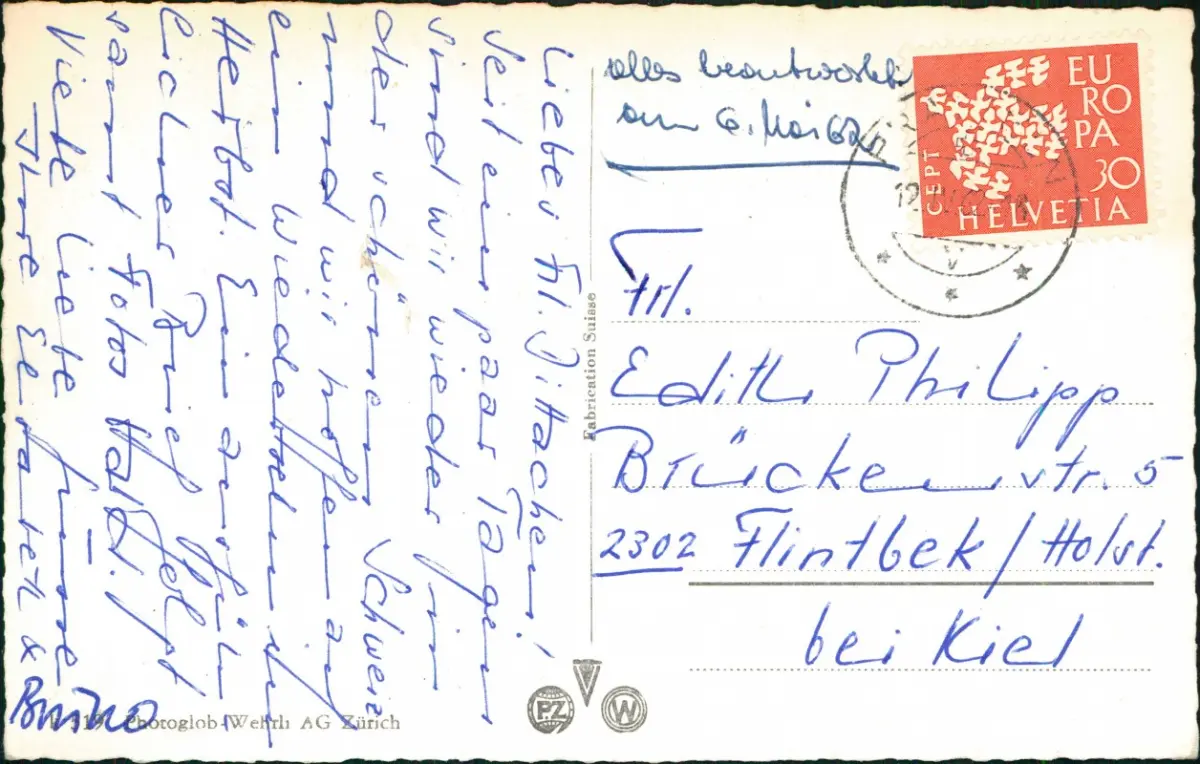 Liebes Frl. Dittachen!
Seit ein paar Tagen
sind wir wieder in
der schönen Schweiz
und wir hoffen auf
ein Wiedersehen im
Herbst. Ein ausführ
licher Brief folgt
samt Fotos
Viele liebe Grüsse
Ihre &
Bruno
alles beantwortet
am 6. Mai 62
EU
RO
PA
30
CEPT
HELVETIA
Frl.
Edith Philipp
Brückenstr. 5
2302 Flintbek/Holst.
bei Kiel
Fabrication Suisse
PZ
W
Photoglob-Wehrli AG Zürich